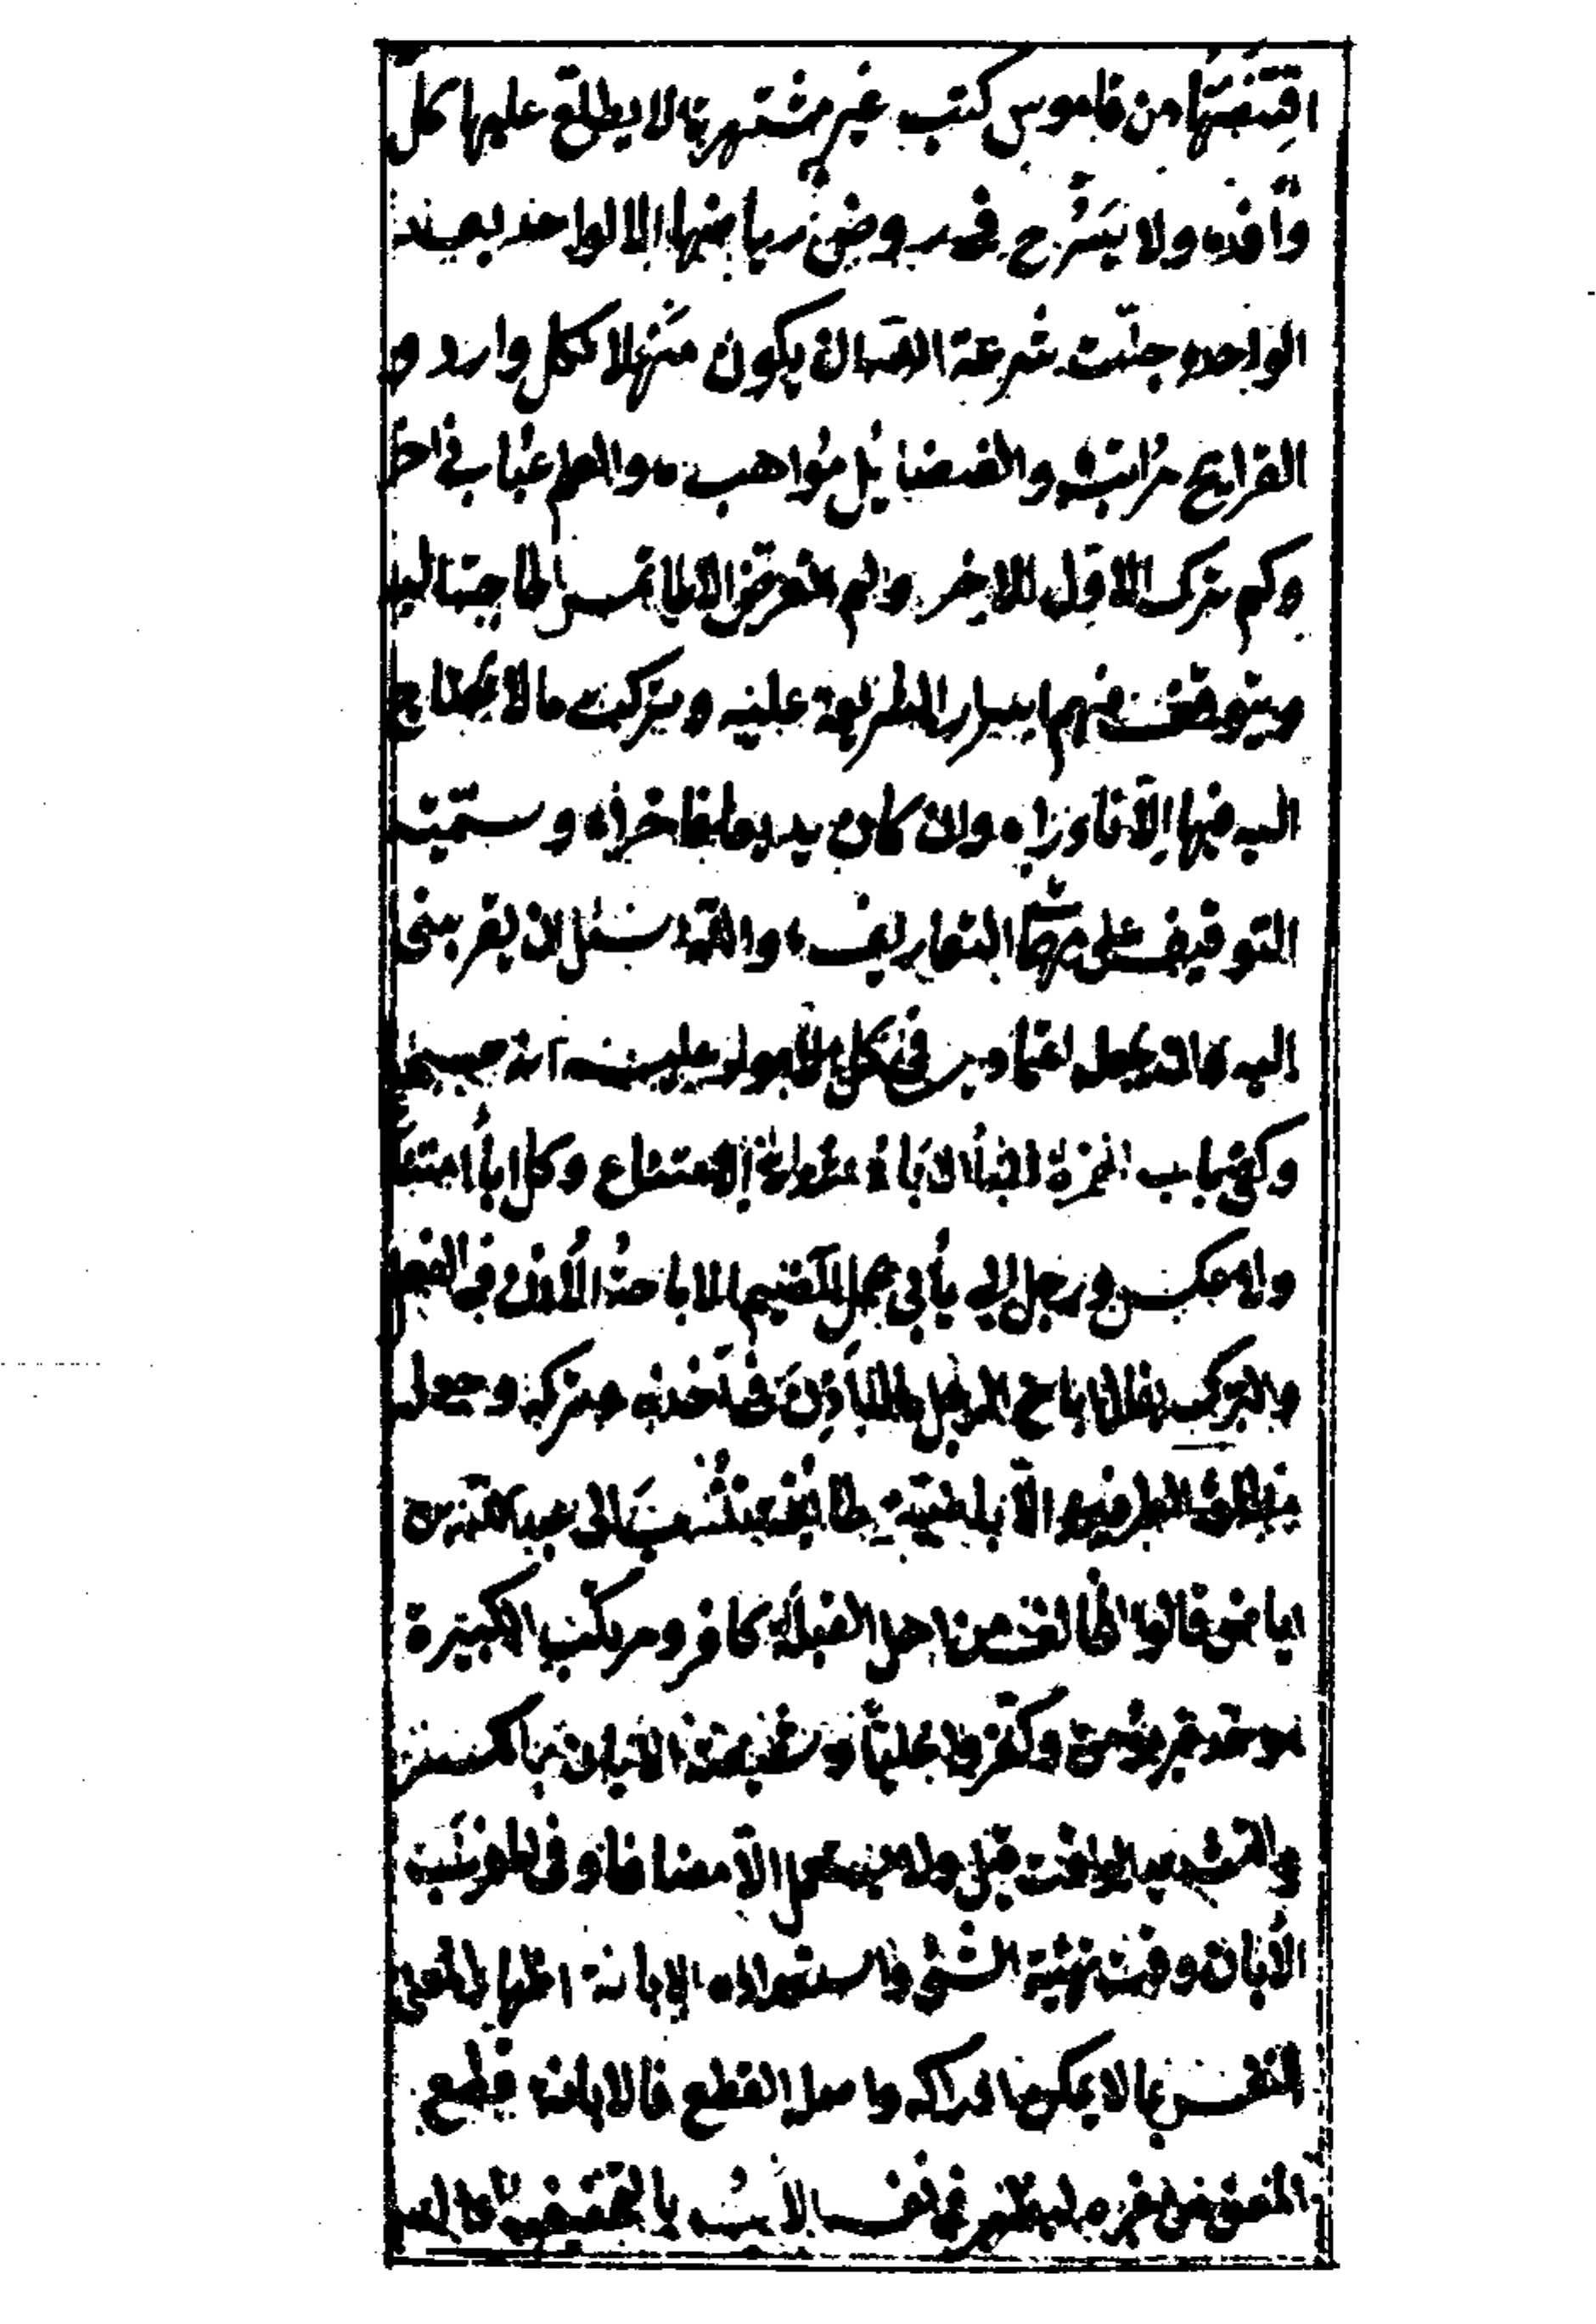 اقتنصتها من قاموس كتب غير مشتهرة لا يطلع عليها كل
وافد ولا يسرح في روض رياضها الا الواحد بعد
الواحد جلت شرعة الله ان يكون منهلا لكل وارد و
القرايح مراتب والفضايل مواهب والعلم عباب زاخر
وكم ترك الاول للاخر ولم اتعرض الا لما تمس الحاجة اليه
ويتوقف فهم اسرار الشريعة عليه وتركت ما لا يحتاج
اليه فيها الا نادرا وان كان بديعا فاخرا وسميته
التوقيف على مهمات التعاريف والله اسئل ان يقربني
اليه
وكفى باب الهمزة الاباء الامتناع وكل اباء امتناع
ولا عكس ورجل ابي يأبى تحمل الضيم الاباحة الاذن في الفعل
والترك يقال اباح الرجل ماله اذن في اخذه وتركه وجعله
مطلق الطرفين الاباضية طائفة تنسب الى عبد الله بن
اباض قالوا مخالفنا من اهل القبلة كافر ومرتكب الكبيرة
موحد غير مؤمن وكفروا عليا وشيعته الابان بالكسر
والتشديد الوقت قيل ولا يستعمل الا مضافا وفي المؤنث
الابان وقت تهيئة الشئ واستعداده الابانة اظهار المعنى
للنفس بما لا يمكن ادراكه واصله القطع فالابانة قطع
المعنى من غيره ليظهر في نفسه الاب